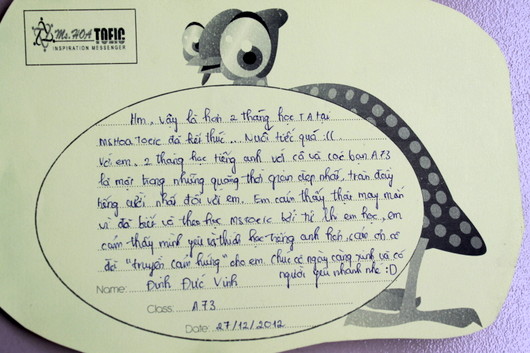 Ms. HOA TOEIC
INSPIRATION MESSENGER
Hm, vậy là hơn 2 tháng học TA tại
MsHoa Toeic đã kết thúc... Nuối tiếc quá :((
Với em, 2 tháng học tiếng anh với cô và các bạn A73
là một trong những quãng thời gian đẹp nhất, tràn đầy
tiếng cười nhất đối với em. Em cảm thấy thật may mắn
vì đã biết và theo học Ms Toeic bởi từ khi em học, em
cảm thấy mình yêu và thích học tiếng anh hơn, cảm ơn cô
đã "truyền cảm hứng" cho em. Chúc cô ngày càng xinh và có
người yêu nhanh nhé :D
Name: Đinh Đức Vinh
Class: A73
Date: 27/12/2012